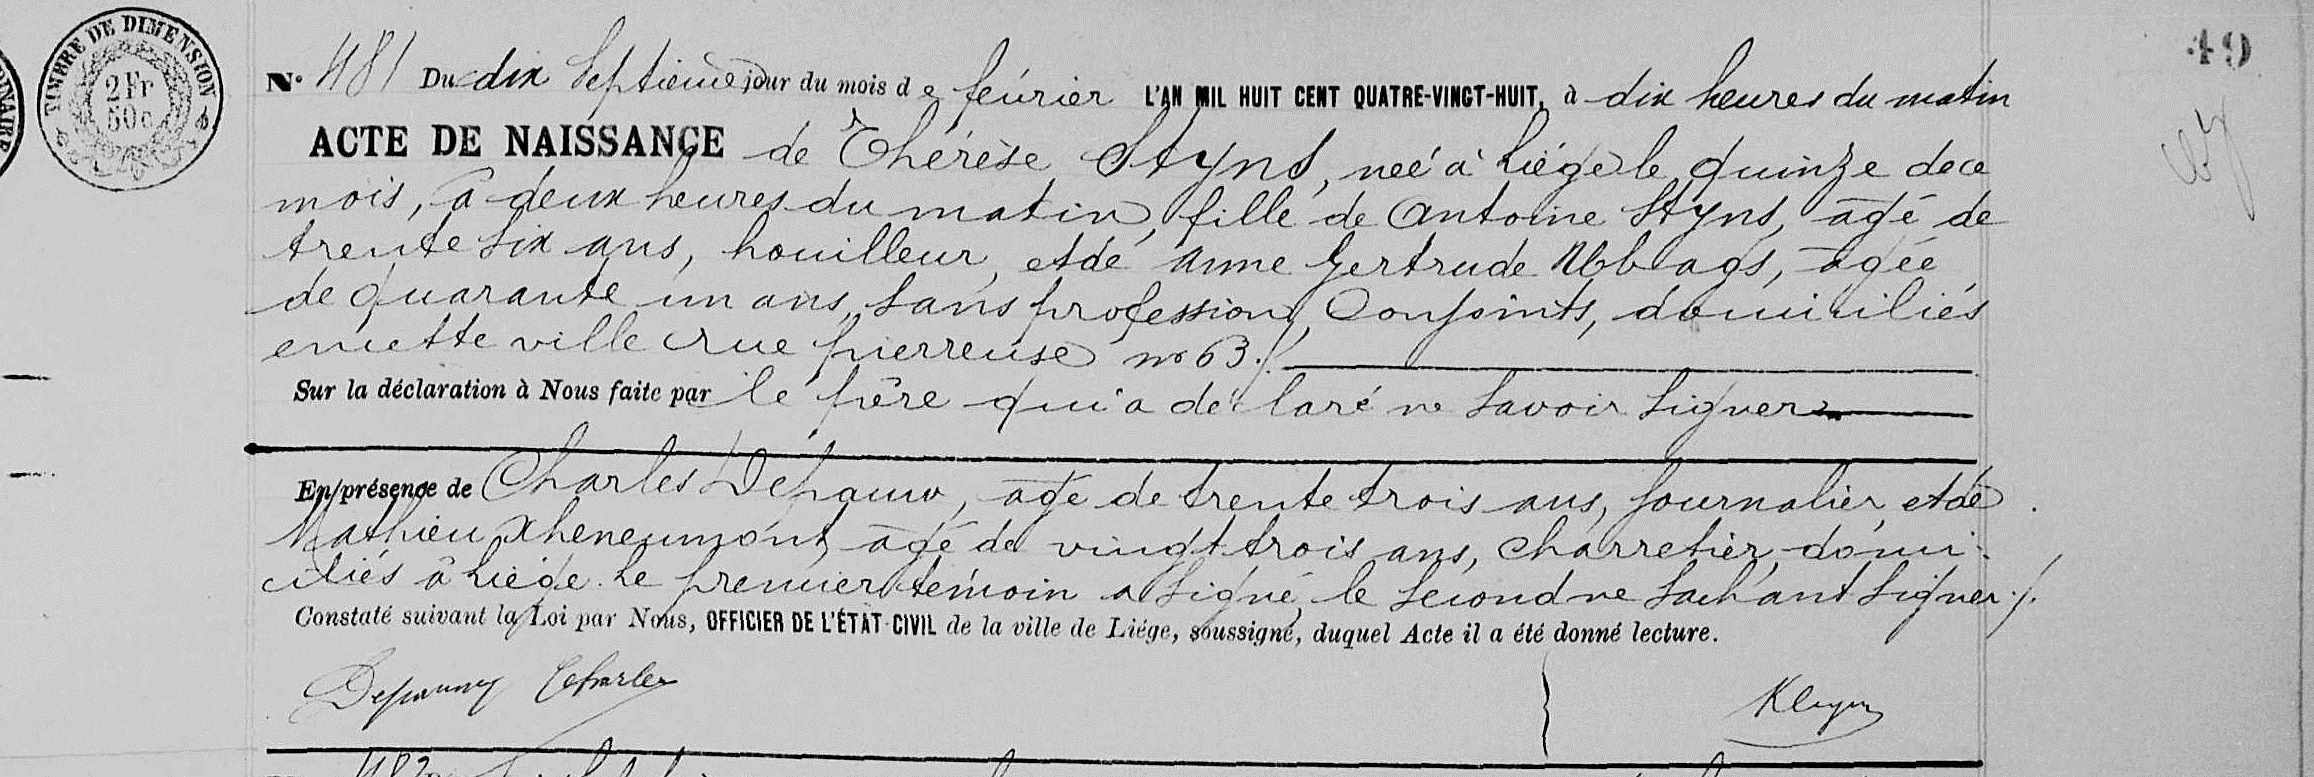 TIMBRE DE DIMENSION
2 Fr
50c
49
N° 481 Du dix septième jour du mois de février L'AN MIL HUIT CENT QUATRE-VINGT-HUIT, à dix heures du matin
ACTE DE NAISSANCE de Thérèse Styns, née à Liége le quinze de ce
mois, à deux heures du matin, fille de Antoine Styns, agé de
trente six ans, houilleur, et de Anne Gertrude Ubbags, agée
de quarante un ans, sans profession, Conjoints, domiciliés
en cette ville rue pierreuse no 63 ./.
Sur la déclaration à Nous faite par le père qui a déclaré ne savoir signer
En présence de Charles Depauw, agé de trente trois ans, journalier, et de
Mathieu Xheneumont, agé de vingt trois ans, charretier, domi-
ciliés à Liége. Le premier témoin a signé, le second ne sachant signer ./.
Constaté suivant la Loi par Nous, OFFICIER DE L'ÉTAT-CIVIL de la ville de Liége, soussigné, duquel Acte il a été donné lecture.
Depauw Charles